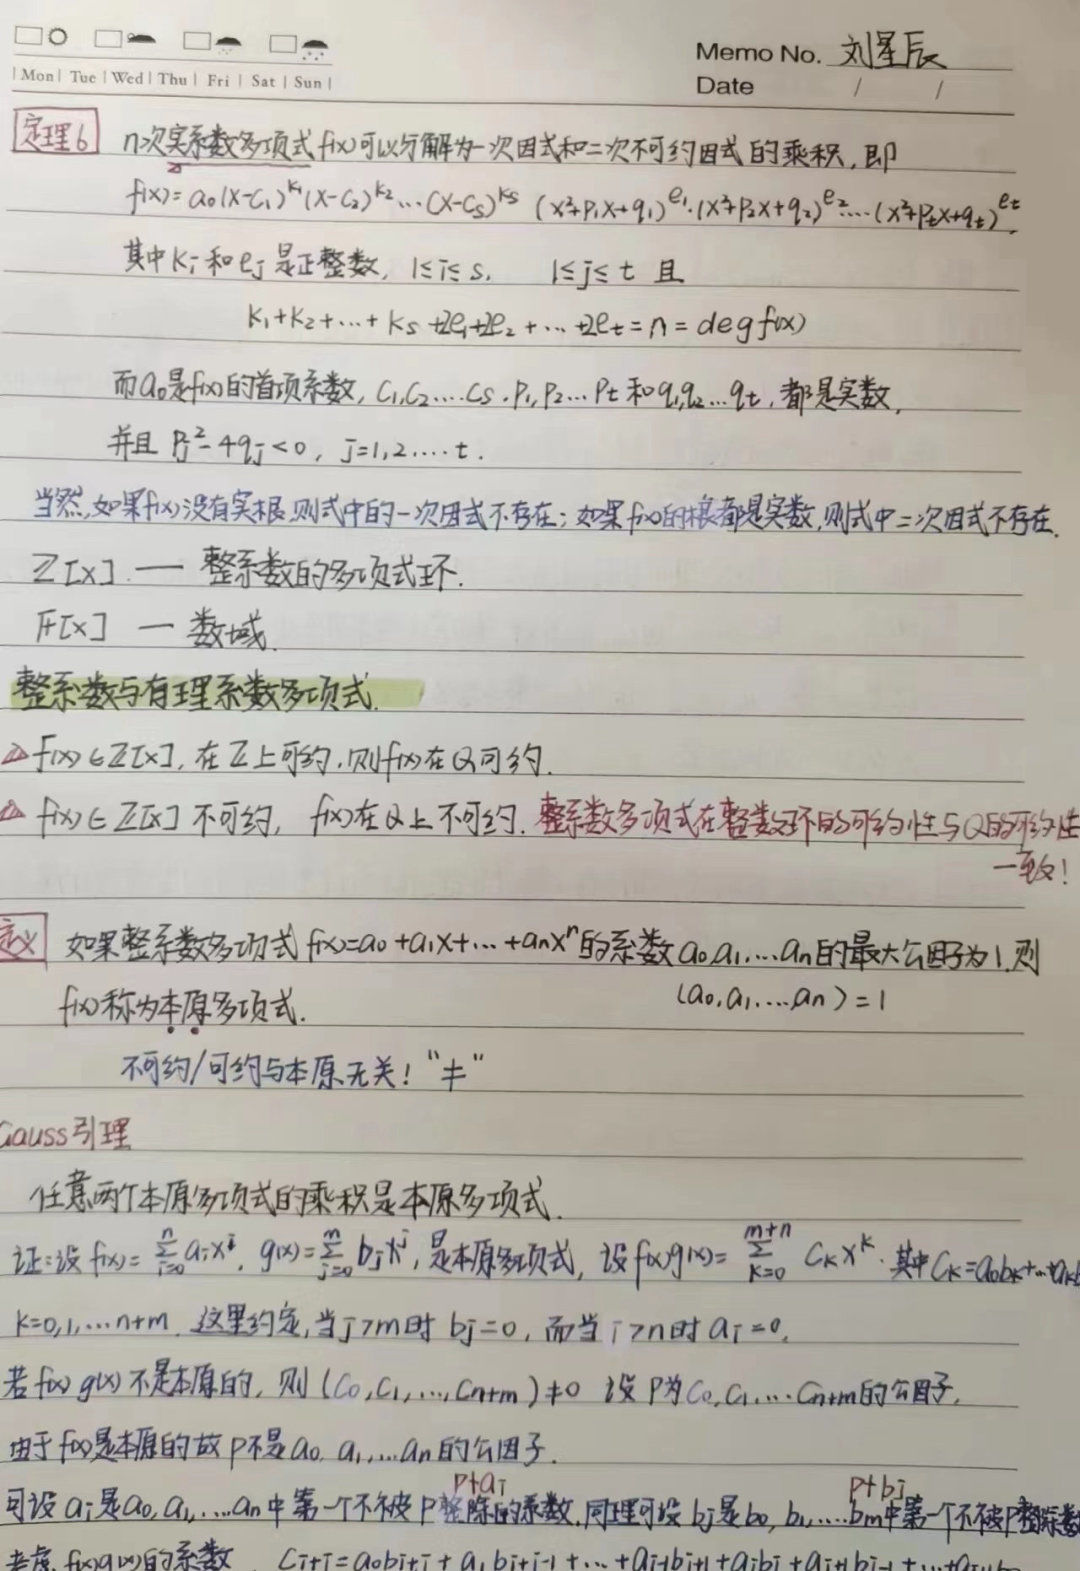 Memo No. 刘星辰
Mon Tue Wed Thu Fri Sat Sun
Date / /
定理6 n次实系数多项式f(x)可以分解为一次因式和二次不可约因式的乘积,即
f(x)=a₀(x-c₁)^k₁(x-c₂)^k₂…(x-cs)^ks (x²+p₁x+q₁)^e₁·(x²+p₂x+q₂)^e₂…(x²+ptx+qt)^et,
其中ki和ej是正整数, 1≤i≤s, 1≤j≤t 且
k₁+k₂+…+ks+2e₁+2e₂+…+2et=n=degf(x)
而a₀是f(x)的首项系数, c₁,c₂…cs,p₁,p₂…pt和q₁,q₂…qt,都是实数,
并且 pj²-4qj<0, j=1,2…t.
当然,如果f(x)没有实根,则式中的一次因式不存在;如果f(x)的根都是实数,则式中二次因式不存在.
Z[x] — 整系数的多项式环.
F[x] — 数域
整系数与有理系数多项式.
△ f(x)∈Z[x],在Z上可约,则f(x)在Q可约.
△ f(x)∈Z[x]不可约, f(x)在Q上不可约.整系数多项式在整数环的可约性与Q的可约性
一致!
定义 如果整系数多项式f(x)=a₀+a₁x+…+anxⁿ的系数a₀,a₁,…an的最大公因子为1,则
f(x)称为本原多项式. (a₀,a₁,…,an)=1
不可约/可约与本原无关!"≠"
Gauss引理
任意两个本原多项式的乘积是本原多项式.
证:设f(x)=∑ⁿᵢ₌₀aᵢxⁱ, g(x)=∑ᵐⱼ₌₀bⱼxʲ,是本原多项式, 设f(x)g(x)=∑ᵐ⁺ⁿₖ₌₀ Cₖxᵏ.其中Cₖ=a₀bₖ+…+aₖb
k=0,1,…n+m,这里约定,当j>m时bj=0,而当i>n时ai=0,
若f(x)g(x)不是本原的,则(C₀,C₁,…,Cn+m)≠0 设P为C₀,C₁,…Cn+m的公因子,
由于f(x)是本原的故P不是a₀,a₁,…an的公因子.
p∤ai p∤bj
可设ai是a₀,a₁,…an中第一个不被P整除的系数,同理可设bj是b₀,b₁,…bm中第一个不被P整除数
考虑f(x)g(x)的系数 Ci+j=a₀bi+j+a₁bi+j-1+…+ai-1bj+1+aibj+ai+1bj-1+…+ai+jb₀